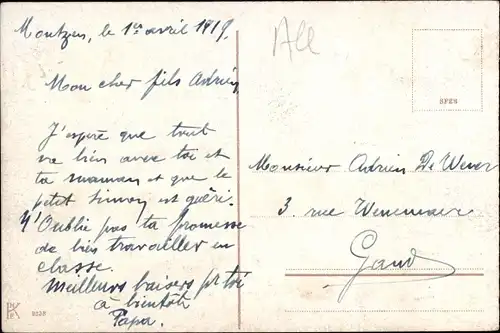 Montzen, le 1er avril 1919.
Mon cher fils Adrien
J'espère que tout
va bien avec toi et
ta maman et que le
petit Simon est guéri.
N'Oublie pas ta promesse
de bien travailler en
classe.
Meilleurs baisers pr toi
à bientôt
Papa.
All
SPES
Monsieur Adrien De Wever
3 rue Wenemaere
Gand
PK
9229